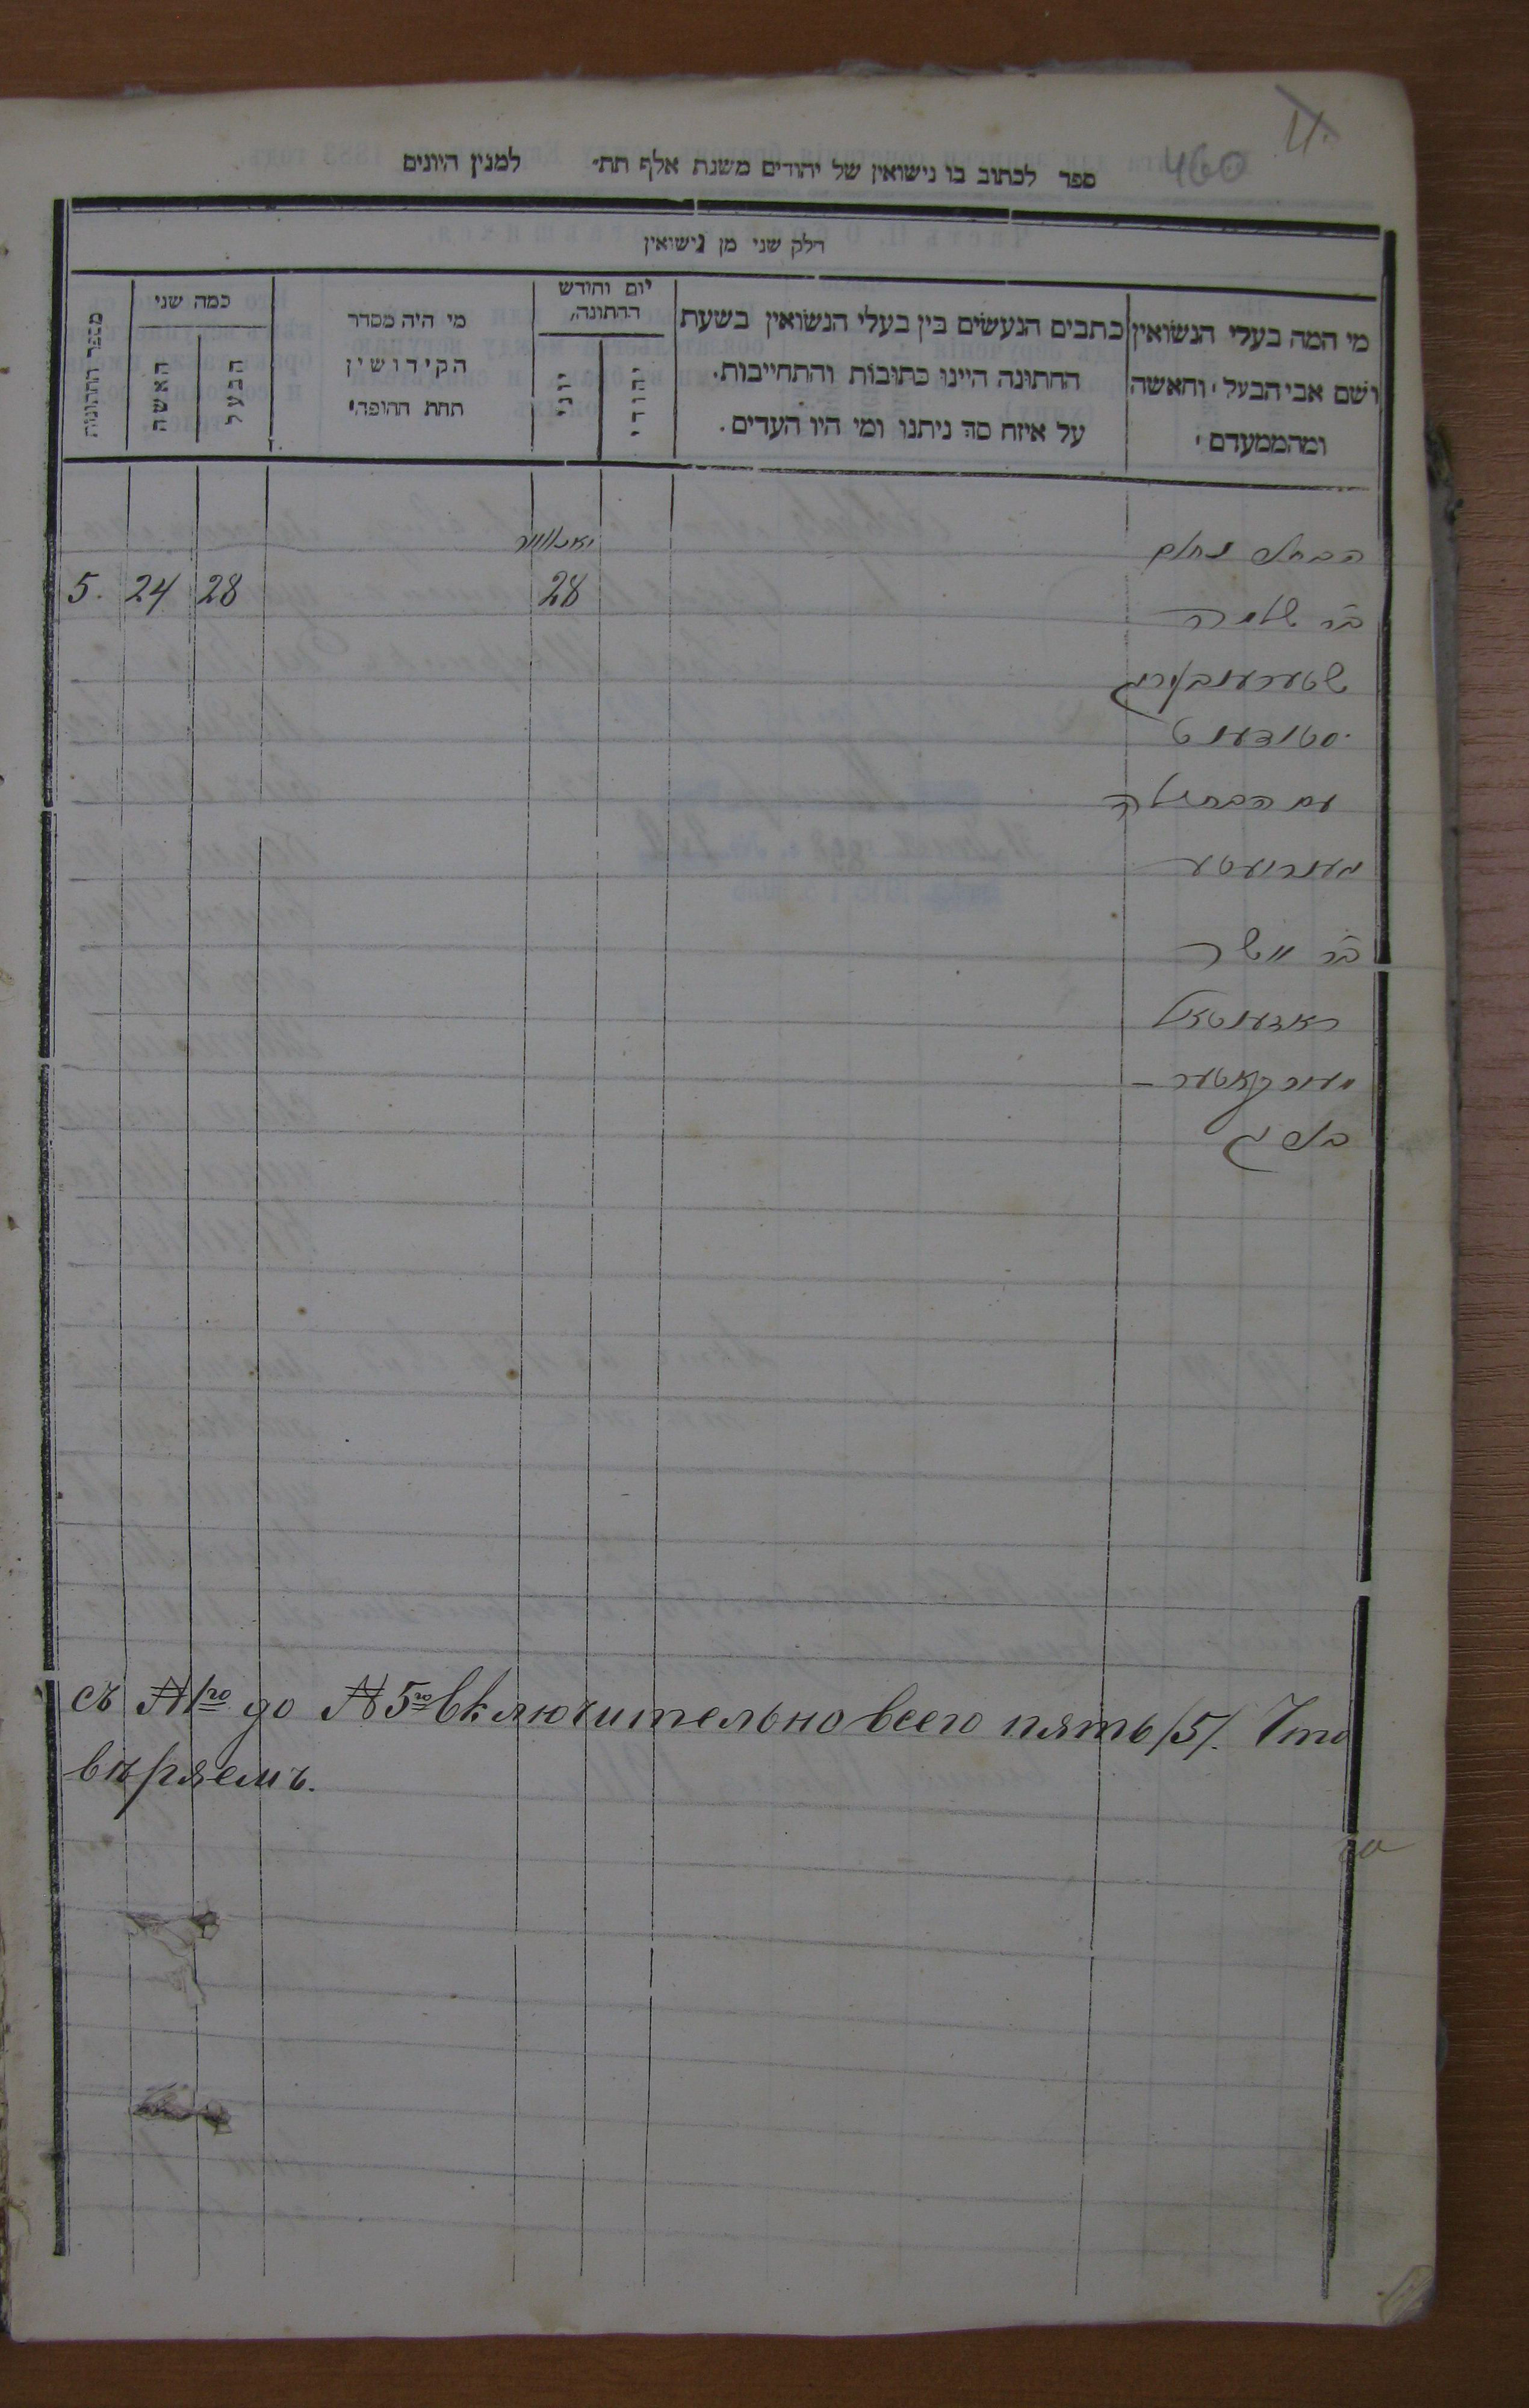 11.
460
ספר לכתוב בו נישואין של יהודים משנת אלף תת״ למנין היונים
חלק שני מן נישואין
מי המה בעלי הנשואין
ושם אבי הבעל והאשה
ומהממעדם
כתבים הנעשים בין בעלי הנשואין בשעת
החתונה היינו כתובות והתחייבות.
על איזה סך ניתנו ומי היו העדים.
יום וחודש
החתונה,
יהודי
יוני
מי היה מסדר
הקידושין
תחת החופה
כמה שני
הבעל
האשה
מספר החתונות
5. 24 28 28
הבחור נחום
ב״ר שלמה
שטערענבערג
סטודענט
עם הבתולה
מענריעטע
ב״ר
ראזענטאל
בת
съ №1го до №5го включительно всего пять /5/. Что
вѣряемъ.